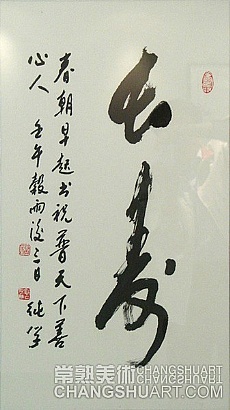 长寿
春朝早起书祝普天下善
心人 壬午穀雨後三日
继学
常熟美術
CHANGSHUART
CHANGSHUART.COM